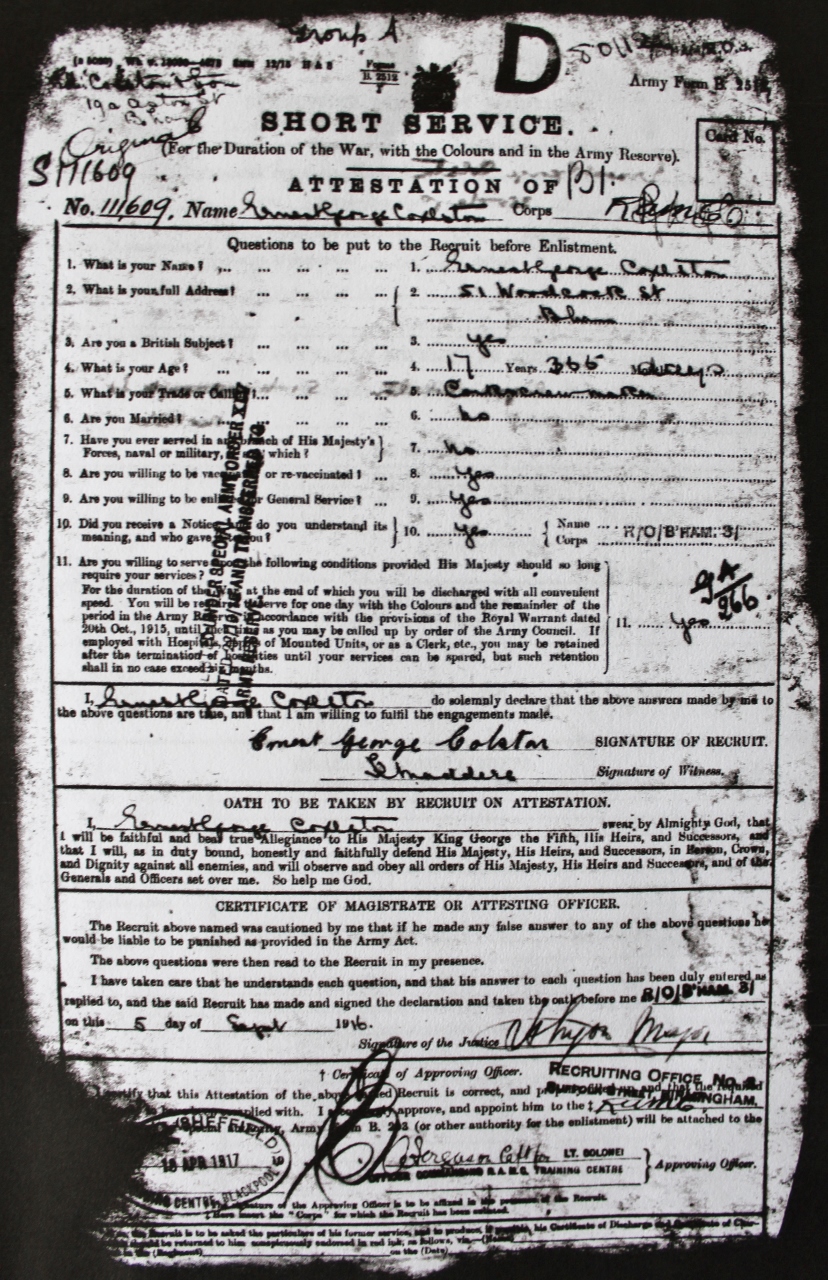 Group A.
D
Forms
B. 2512
1
Army Form B. 2512
19a Aston St
B'ham
Original
S 111609
SHORT SERVICE.
Card No.
(For the Duration of the War, with the Colours and in the Army Reserve).
ATTESTATION OF
No. 111609. Name Ernest George Colston Corps
Questions to be put to the Recruit before Enlistment.
1. What is your Name? ... 1. Ernest George Colston
2. What is your full Address? ... 2. 51 Woodcock St
Bham
3. Are you a British Subject? ... 3. Yes
4. What is your Age? ... 4. 17 Years 366
5. What is your Trade or Calling? ... 5.
6. Are you Married? ... 6. No
7. Have you ever served in any branch of His Majesty's
Forces, naval or military, which? 7. No
8. Are you willing to be vaccinated or re-vaccinated? 8. Yes
9. Are you willing to be enlisted for General Service? 9. Yes
10. Did you receive a Notice, and do you understand its
meaning, and who gave it to you? 10. Yes Name
Corps R/O/B'HAM. 3/
11. Are you willing to serve upon the following conditions provided His Majesty should so long
require your services?
For the duration of the War, at the end of which you will be discharged with all convenient
speed. You will be required to serve for one day with the Colours and the remainder of the
period in the Army Reserve, in accordance with the provisions of the Royal Warrant dated
20th Oct., 1915, until such time as you may be called up by order of the Army Council. If
employed with Hospitals, depots of Mounted Units, or as a Clerk, etc., you may be retained
after the termination of hostilities until your services can be spared, but such retention
shall in no case exceed six months.
11. Yes
9A
266
I, Ernest George Colston do solemnly declare that the above answers made by me to
the above questions are true, and that I am willing to fulfil the engagements made.
Ernest George Colston SIGNATURE OF RECRUIT.
Signature of Witness.
OATH TO BE TAKEN BY RECRUIT ON ATTESTATION.
I, Ernest George Colston swear by Almighty God, that
I will be faithful and bear true Allegiance to His Majesty King George the Fifth, His Heirs, and Successors, and
that I will, as in duty bound, honestly and faithfully defend His Majesty, His Heirs, and Successors, in Person, Crown,
and Dignity against all enemies, and will observe and obey all orders of His Majesty, His Heirs and Successors, and of the
Generals and Officers set over me. So help me God.
CERTIFICATE OF MAGISTRATE OR ATTESTING OFFICER.
The Recruit above named was cautioned by me that if he made any false answer to any of the above questions he
would be liable to be punished as provided in the Army Act.
The above questions were then read to the Recruit in my presence.
I have taken care that he understands each question, and that his answer to each question has been duly entered as
replied to, and the said Recruit has made and signed the declaration and taken the oath before me R/O/B'HAM. 3/
on this 5 day of Sept 1916.
Signature of the Justice Major
† Certificate of Approving Officer.
RECRUITING OFFICE No. 2
SUFFOLK STREET, BIRMINGHAM.
I certify that this Attestation of the above named Recruit is correct, and
complied with. I accordingly approve, and appoint him to the ‡
Army Form B. 203 (or other authority for the enlistment) will be attached to the
SHEFFIELD
18 APR 1917
CENTRE, BLACKPOOL
Ferguson LT. COLONEL
OFFICER COMMANDING R.A.M.C. TRAINING CENTRE
Approving Officer.
signature of the Approving Officer is to be affixed in the presence of the Recruit.
‡ Here insert the "Corps" for which the Recruit has been enlisted.